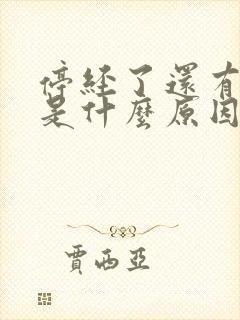 停經了還有
是什麼原因
賈西亞